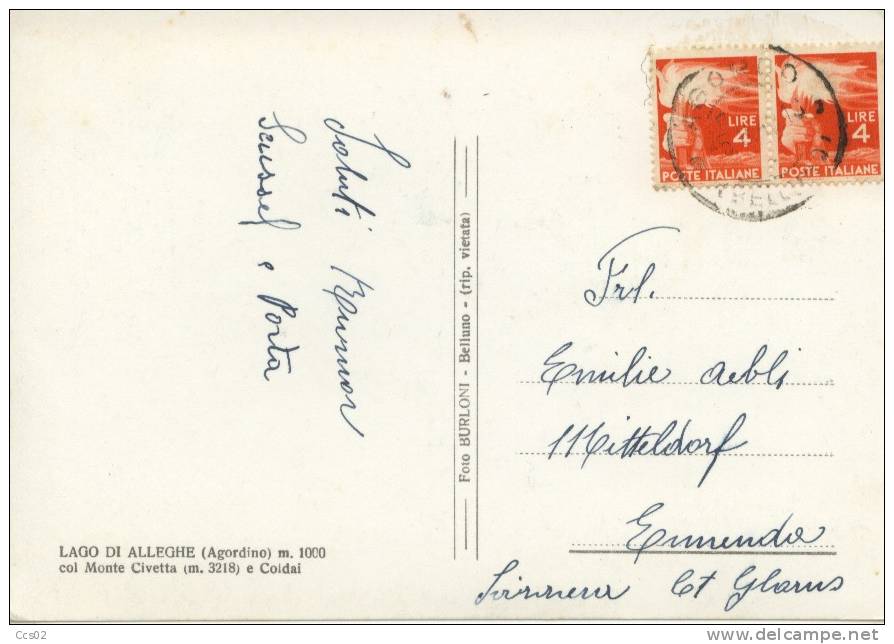 LIRE 4
POSTE ITALIANE
LIRE 4
POSTE ITALIANE
Saluti
Scussel e Porta
Foto BURLONI - Belluno - (rip. vietata)
Frl.
Emilie Aebli
Mitteldorf
Ennenda
Ct Glarus
LAGO DI ALLEGHE (Agordino) m. 1000
col Monte Civetta (m. 3218) e Coldai
Ccs02
http://www.delcampe.net